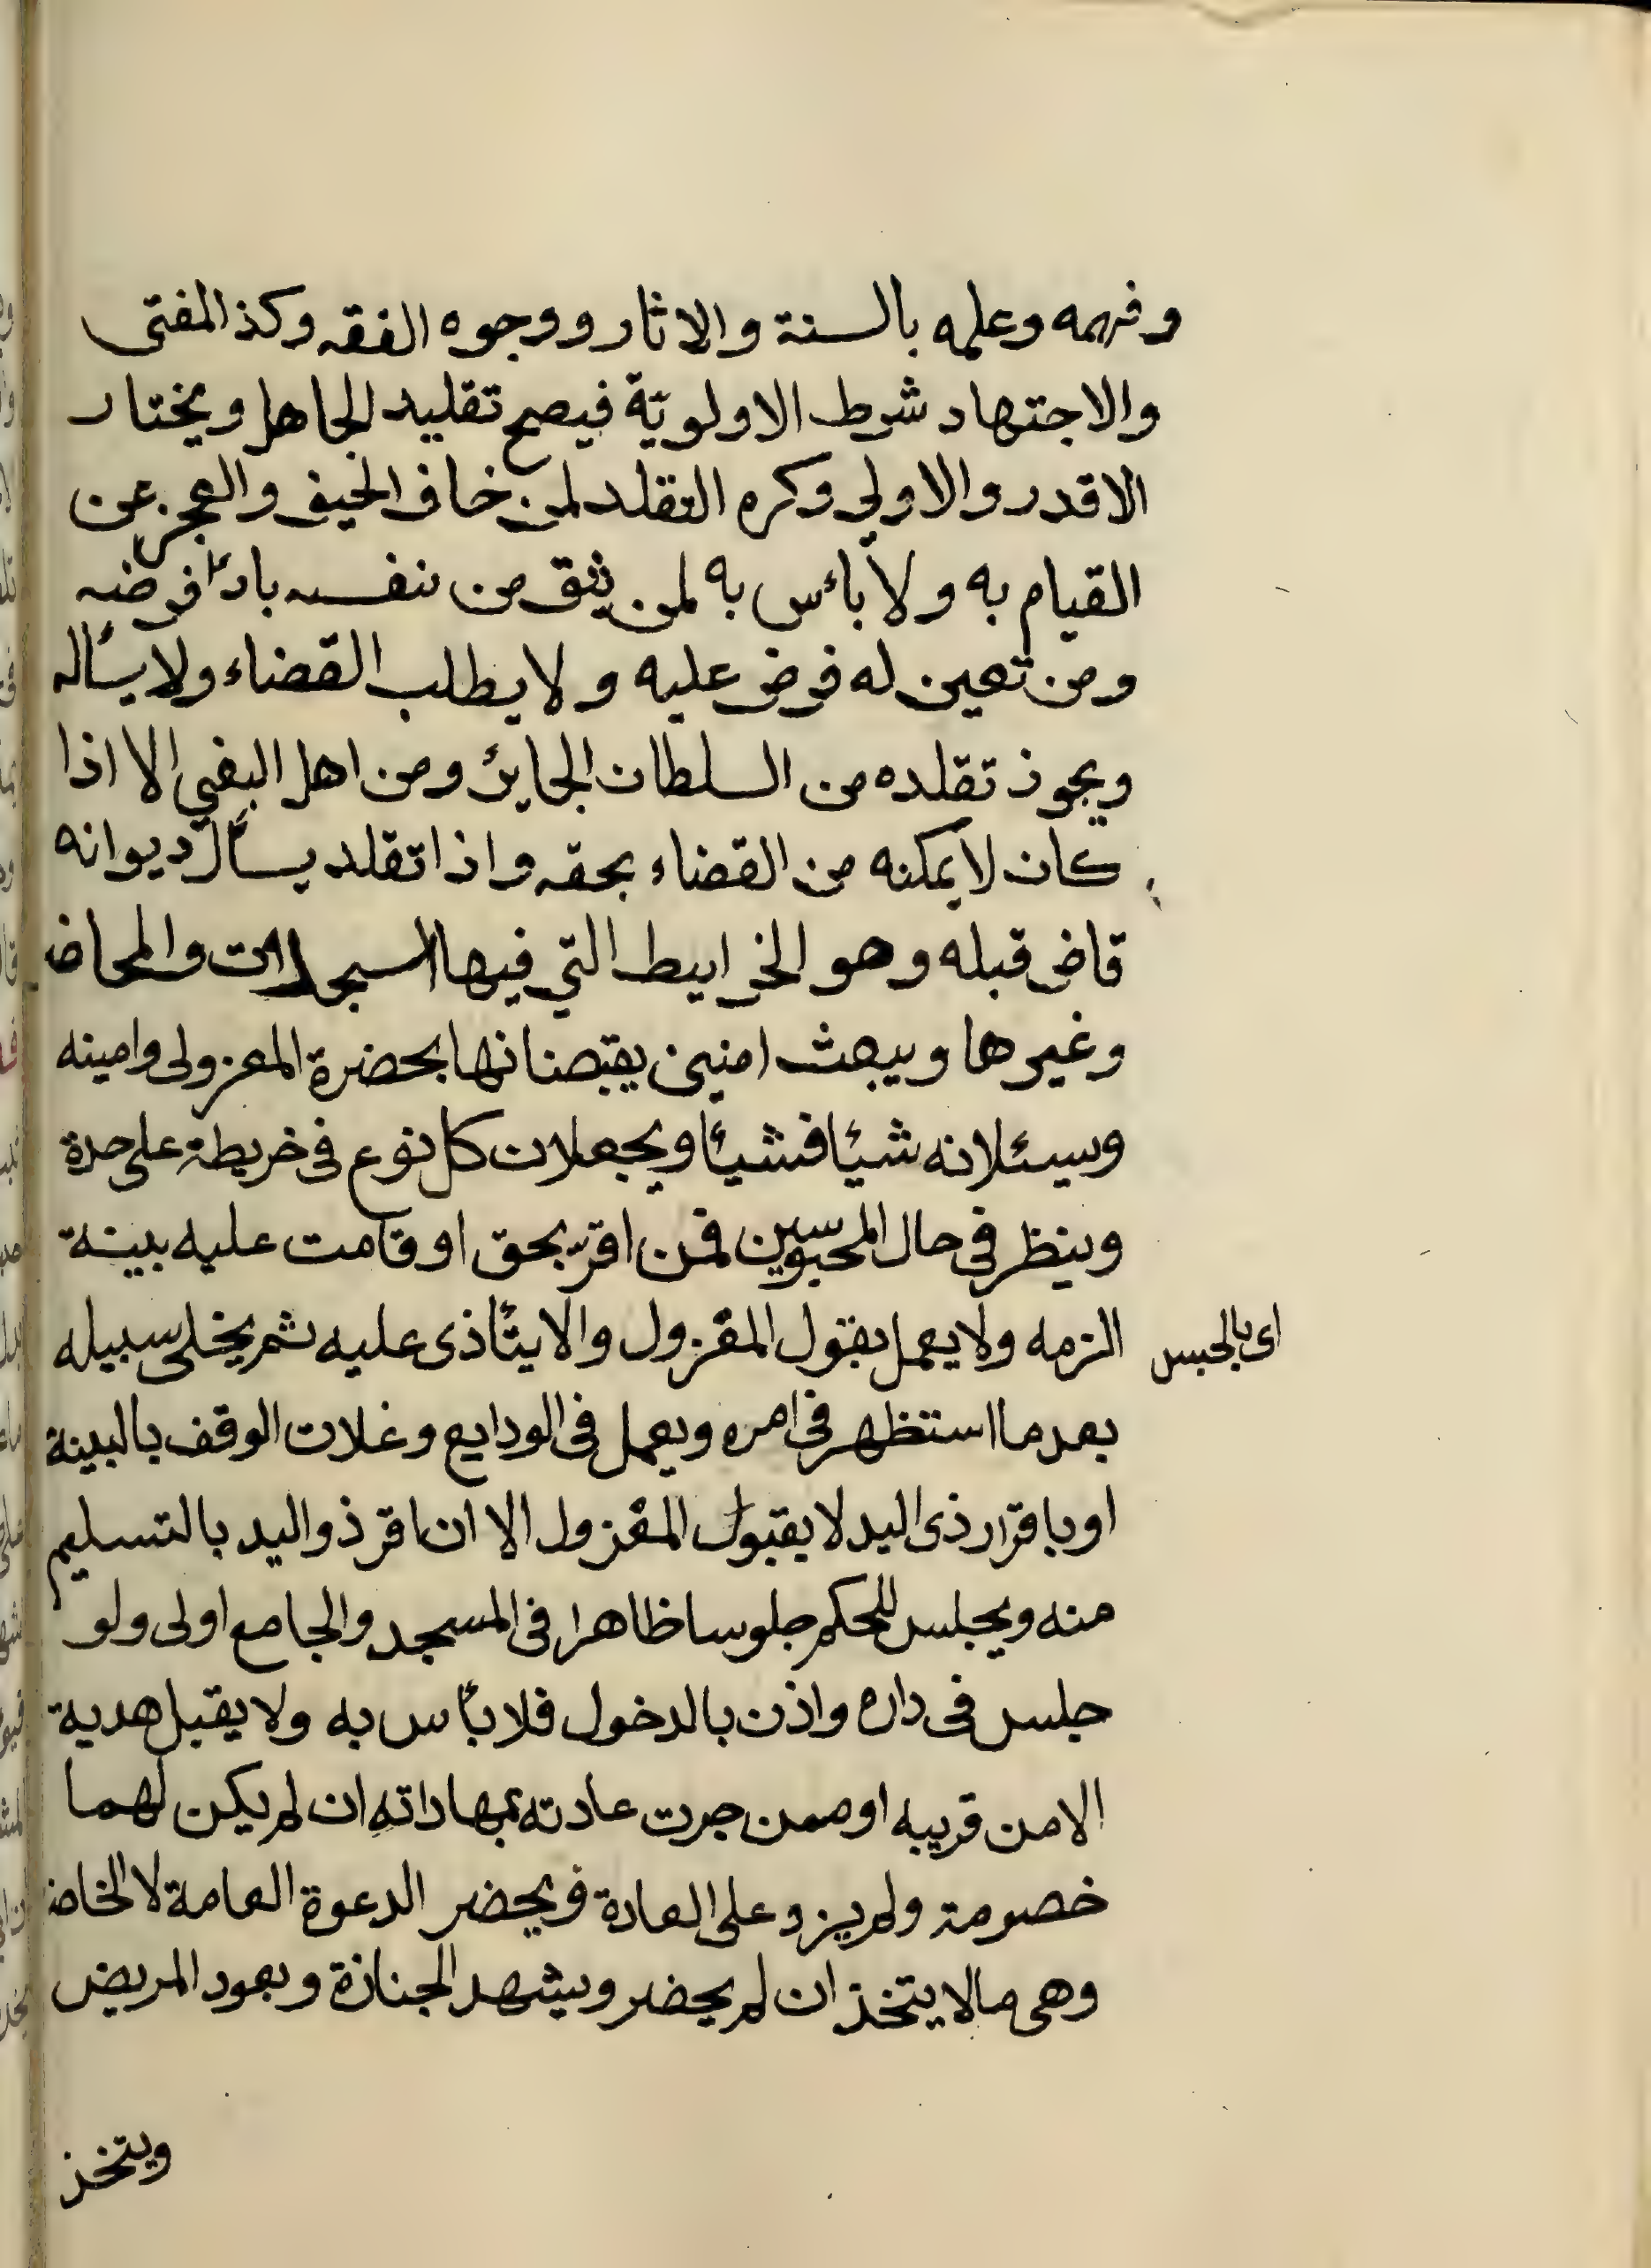 وفهمه وعلمه بالسنة والاثار ووجوه الفقه وكذ المفتى
والاجتهاد شرط الاولويّة فيصح تقليد الجاهل ويختار
الاقدر والاولي وكره التقلد لمن خاف الحيف والعجز عن
القيام به ولا بائس به لمن يثق من نفسه باداء فرضه
ومن تعين له فرض عليه ولا يطلب القضاء ولا يسأله
ويجوز تقلده من السلطان الجاير ومن اهل البغي الا اذا
كان لا يمكنه من القضاء بحقه واذا تقلد يسأل ديوانه
قاض قبله وهو الخرايط التي فيها السجلات والمحاض
وغيرها ويبعث امنين يقبضانها بحضرة المعزولى وامينه
وسيئلانه شيئا فشيئا ويجعلان كل نوع فى خريطة على حدة
وينظر فى حال المحبوسين فمن اقرّ بحق او قامت عليه بينة
الزمه ولا يعمل بقول المعزول والا يتأذى عليه ثم يخلى سبيله
اى بالحبس
بعد ما استظهر فى امره ويعمل فى الودايع وغلات الوقف بالبينة
او باقرار ذى اليد لا يقبول المعزول الا ان اقر ذو اليد بالتسليم
منه ويجلس للحكم جلوسا ظاهرا فى المسجد والجامع اولى ولو
جلس فى داره واذن بالدخول فلا بأس به ولا يقبل هدية
الا من قريبه او ممن جرت عادته بمهاداته ان لم يكن لهما
خصومة ولم يزد على العادة ويحضر الدعوة العامة لا الخاصة
وهى ما لا يتخذ ان لم يحضر ويشهد الجنازة ويعود المريض
ويتخذ